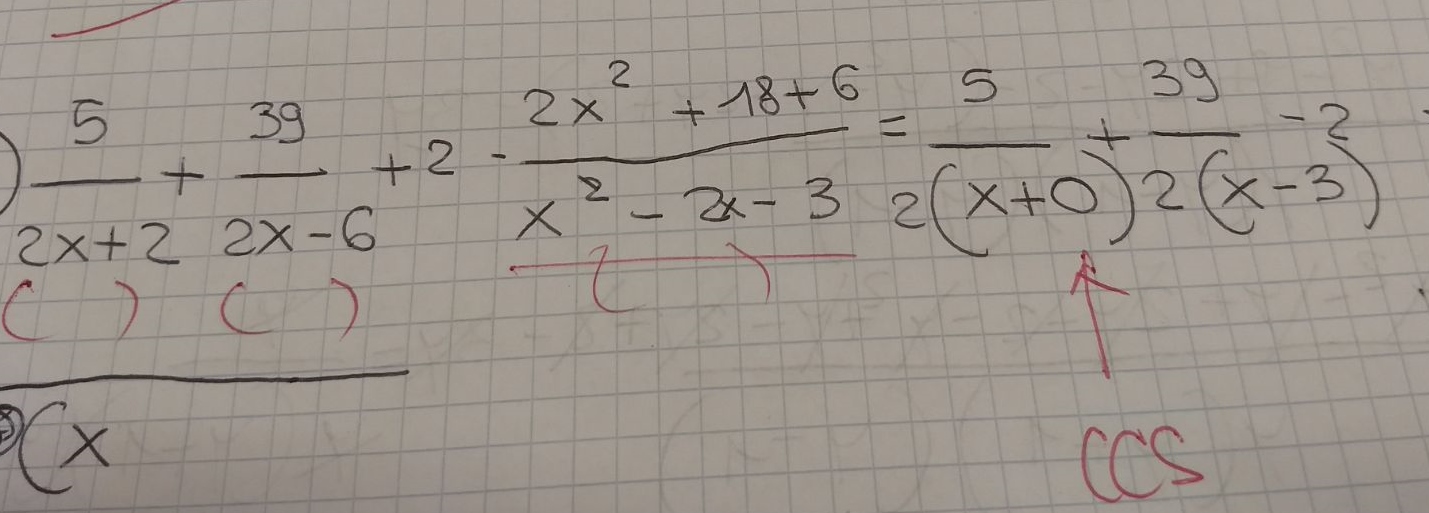 ) 5/(2x+2) + 39/(2x-6) + 2 - (2x² + 18 + 6)/(x² - 2x - 3) = 5/(2(x+0)) + 39/(2(x-3)) - 2
( ) ( ) ( )
(x
CCS